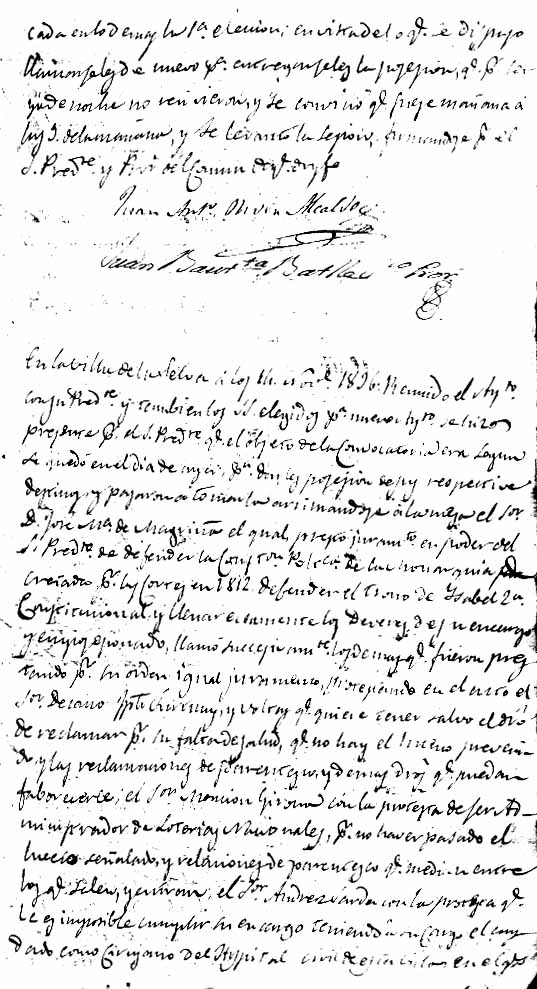 cada en lo demas la 1ª eleccion; en vista de lo q.e se dispuso
llamarseles de nuevo p.a entregarseles la posesion, q.e p.r ser
ya de noche no vinieron, y se convino q.e fuese mañana á
las 9. de la mañana, y se levantó la sesion, firmandose p.r el
S. Pred.te y Pror del Comun de q.e doy fe
Juan Ant.o Alcalde
Juan Baut.ta Batlle Pror
En la villa de la Selva á los 14. 1836. Reunido el Ayt.o
con su Pred.te y tambien los SS. elegidos p.a nuevo Ayt.o se hizo
presente p.r el S. Pred.te q.e el objeto de la Convocatoria era segun
se quedó en el dia de ayer, p.a darles posesion de sus respectivos
destinos, y pasaron á tomarla arrimandose á la mesa el Sor
D. José M.a de Magriñá el qual prestó juram.to en poder del
S. Pred.te de defender la Const.on Polit.ca de la Monarquia
cretada p.r las Cortes en 1812. defender el trono de Ysabel 2ª
Constitucional, y llenar exactamente los deveres de su encargo
y en su posesionado, llamó succesivam.te los demas q.e fueron pres
tando p.r su orden igual juramento, protestando en el acto el
Sor decano y q.e quiere tener salvo el dro
de reclamar p.r su falta de salud, q.e no hay el hueco preveni
do, y las reclamaciones de parentesco, y demas dros q.e puedan
faborecerle; el Sor Girona con la protesta de ser Ad-
ministrador de Loterias Nacionales, p.r no haver pasado el
hueco señalado, y relaciones de parentesco q.e median entre
los q.e salen, y entran; el Sor Andres con la protesta q.e
le es imposible cumplir su encargo teniendo á su cargo el cuy
dado como Cirujano del Hospital civil de esta villa en el q.e